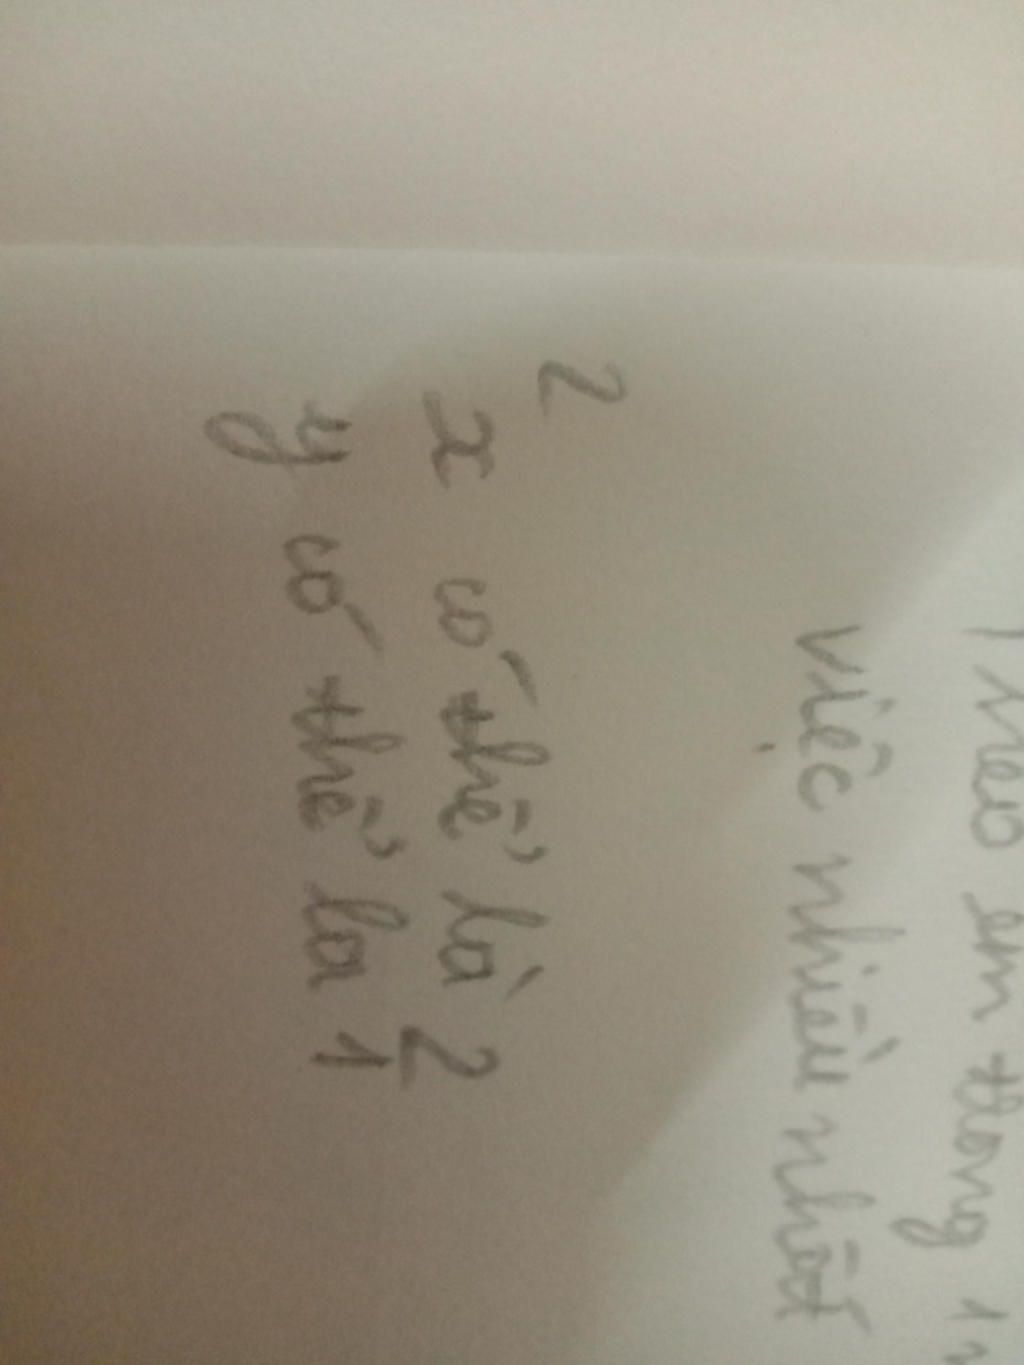 Theo em trong 1
việc nhiều nhất
2
x có thể là 2
y có thể la 1